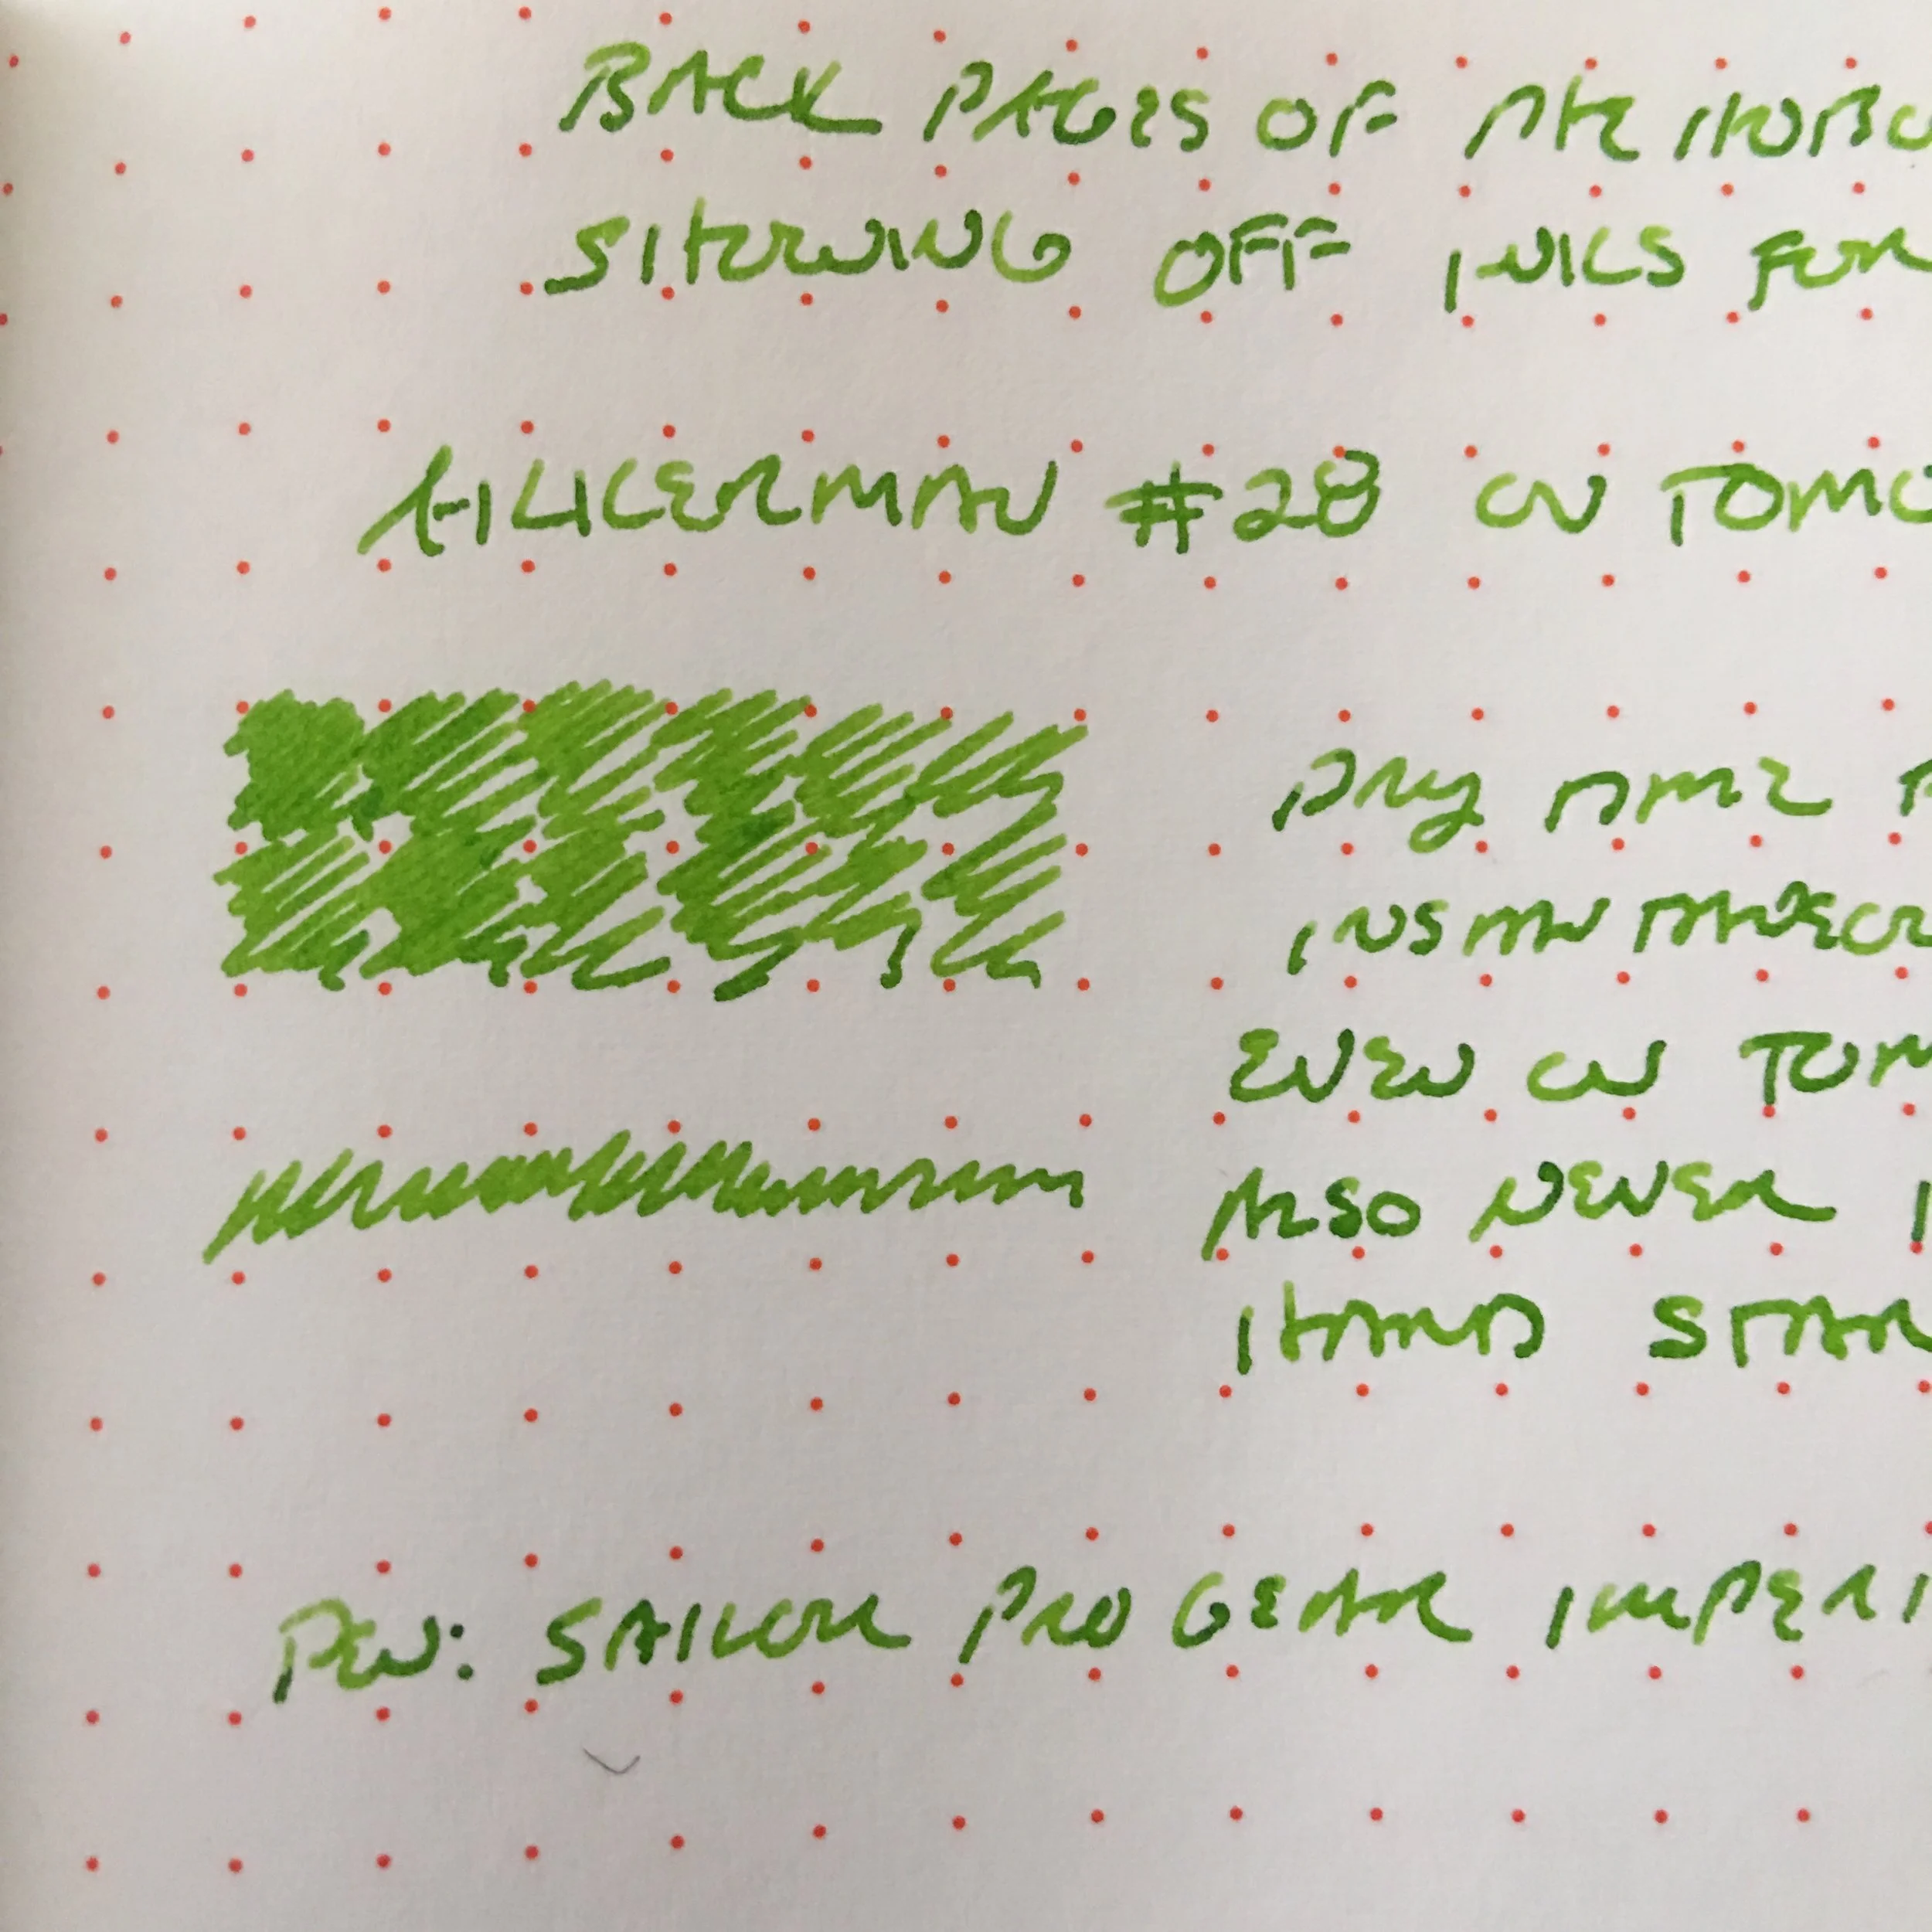 BACK PAGES OF MY HOBO
SHOWING OFF INKS FOR
AKKERMAN #28 ON TOMO
DRY TIME
INSTANTANEOU
EVEN ON TOM
ALSO NEVER
HAND STAR
PEN: SAILOR PRO GEAR IMPERI